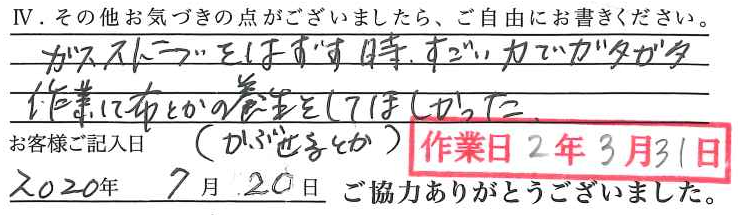 Ⅳ．その他お気づきの点がございましたら、ご自由にお書きください。
ガスストーブをはずす時、すごい力でガタガタ
作業に布とかの養生をしてほしかった、
(かぶせるとか)
お客様ご記入日
作業日 2年3月31日
2020年 7月 20日 ご協力ありがとうございました。